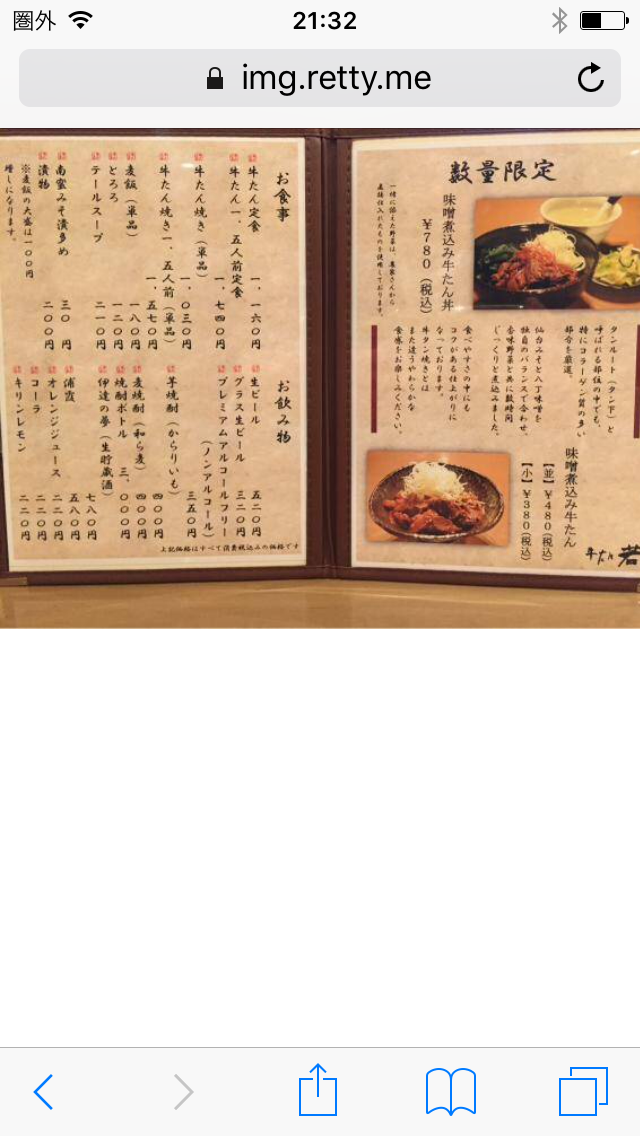 圏外
21:32
img.retty.me
数量限定
味噌煮込み牛たん丼
¥780(税込)
一緒に添えた野菜は、農家さんから
直接仕入れたものを使用しております。
タンルート(タン下)と
呼ばれる部位の中でも、
特にコラーゲン質の多い
部分を厳選。
仙台みそと八丁味噌を
独自のバランスで合わせ、
香味野菜と共に数時間
じっくりと煮込みました。
食べやすさの中にも
コクがある仕上がりに
なっております。
牛タン焼きとは
また違うやわらかな
食感をお楽しみください。
味噌煮込み牛たん
【並】¥480(税込)
【小】¥380(税込)
牛たん 若
お食事
牛たん定食 一、一六〇円
牛たん一、五人前定食 一、七四〇円
牛たん焼き(単品) 一、〇三〇円
牛たん焼き一、五人前(単品) 一、五七〇円
麦飯(単品) 一八〇円
とろろ 一二〇円
テールスープ 二一〇円
南蛮みそ漬多め 三〇円
漬物 二〇〇円
※麦飯の大盛は一〇〇円
増しになります。
お飲み物
生ビール 五二〇円
グラス生ビール 三二〇円
プレミアムアルコールフリー
(ノンアルコール) 三五〇円
芋焼酎(からりいも) 四〇〇円
麦焼酎(和ら麦) 四〇〇円
焼酎ボトル 三、〇〇〇円
伊達の夢(生貯蔵酒) 七八〇円
浦霞 五八〇円
オレンジジュース 二二〇円
コーラ 二二〇円
キリンレモン 二二〇円
上記価格はすべて消費税込みの価格です